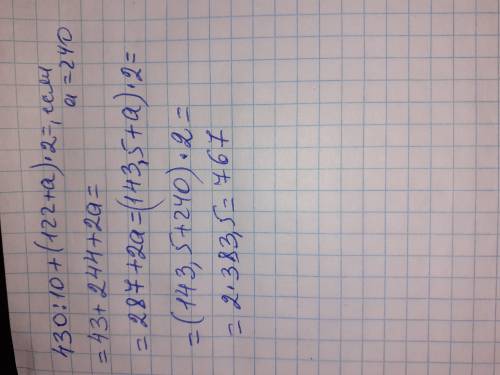 430:10+(122+a)·2=, если
a=240
=43+244+2a=
=287+2a=(143,5+a)·2=
=(143,5+240)·2=
=2·383,5=767